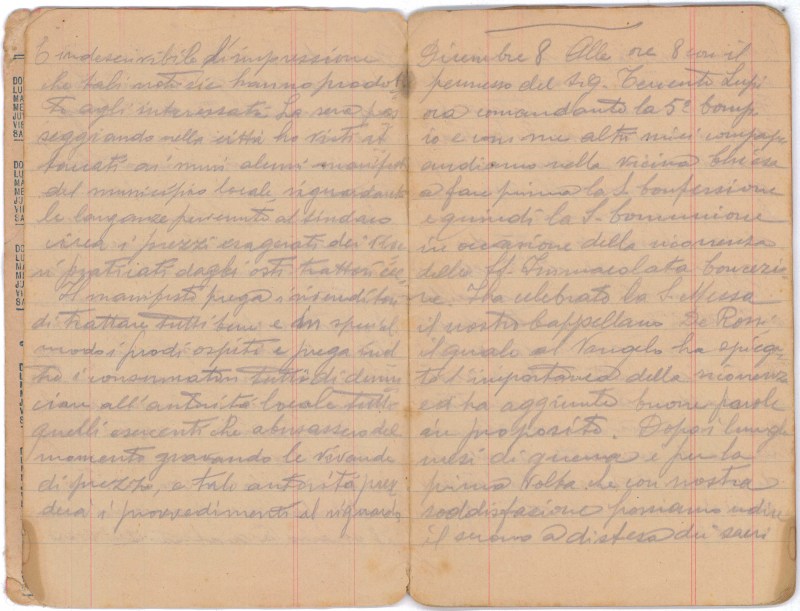 È indescrivibile l'impressione
che tali notizie hanno prodot
to agli interessati. La sera pas
seggiando nella città ho visti at
taccati ai muri alcuni manifesti
del municipio locale riguardante
le lagnanze pervenute al sindaco
circa i prezzi esagerati dei vive
ri praticati dagli osti trattori ecc
Il manifesto prega i rivenditori
di trattare tutti bene e in special
modo i prodi ospiti e prega inol
tre i consumatori tutti di denun
ciare all'autorità locale tutti
quelli esercenti che abusassero del
momento gravando le vivande
di prezzo, e tale autorità pren
derà i provvedimenti al riguardo
Dicembre 8 Alle ore 8 con il
permesso del sig. Tenente Lupi
ora comandante la 5ª Comp
io e con me altri miei compagni
andiamo nella vicina Chiesa
a fare prima la S. Confessione
e quindi la S. Comunione
in occasione della ricorrenza
della SS. Immacolata Concezio
ne. Ha celebrato la S. Messa
il nostro Cappellano De Rossi
il quale al Vangelo ha spiega
to l'importanza della ricorrenza
ed ha aggiunto buone parole
in proposito. Dopo i lunghi
mesi di guerra è per la
prima volta che con nostra
soddisfazione possiamo udire
il suono a distesa dei sacri
DO
LU
MA
ME
JU
VI
SA
DO
LU
MA
ME
JU
VI
SA
DO
LU
MA
ME
JU
VI
SA